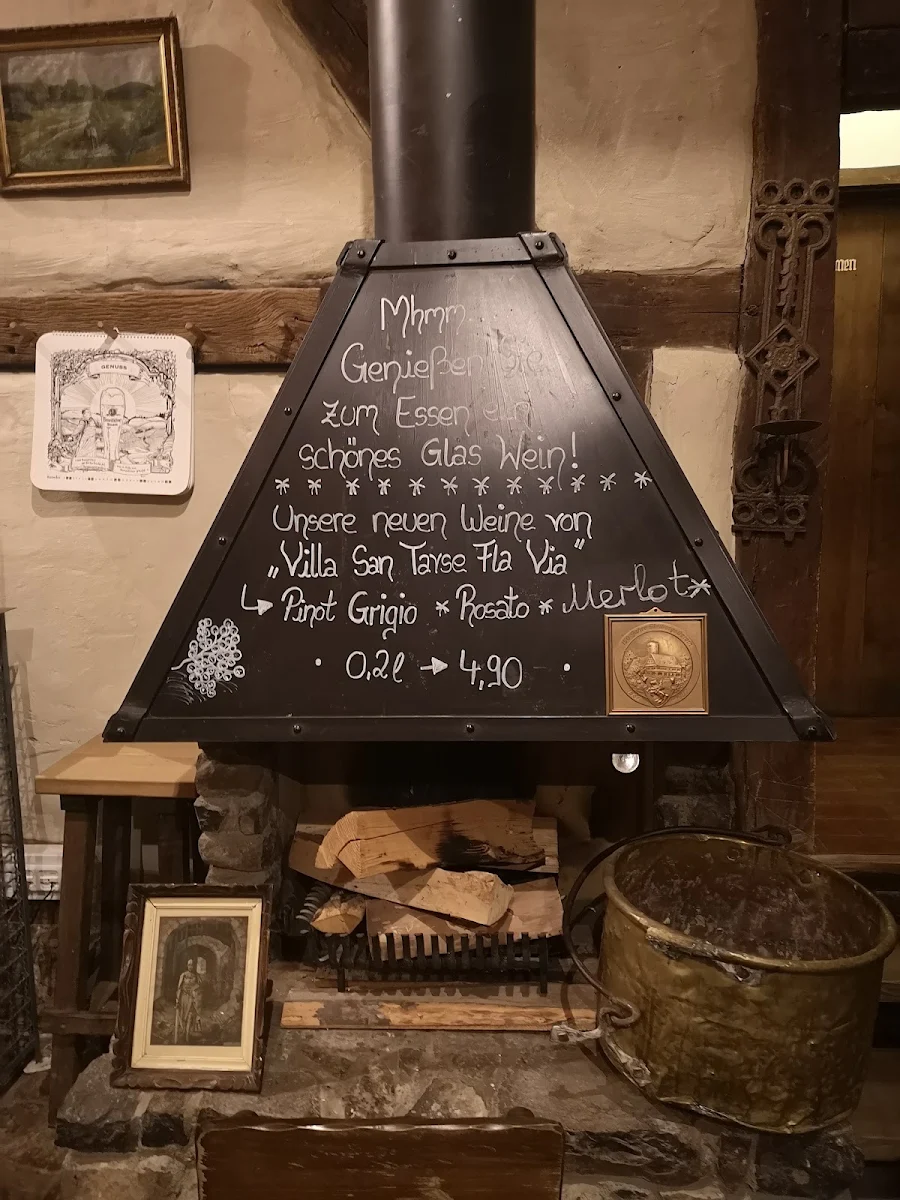 Mhmm...
Genießen Sie
zum Essen ein
schönes Glas Wein!
Unsere neuen Weine von
„Villa San Tarse Fla Via"
Pinot Grigio * Rosato * Merlot *
0,2l → 4,90
GENUSS
men